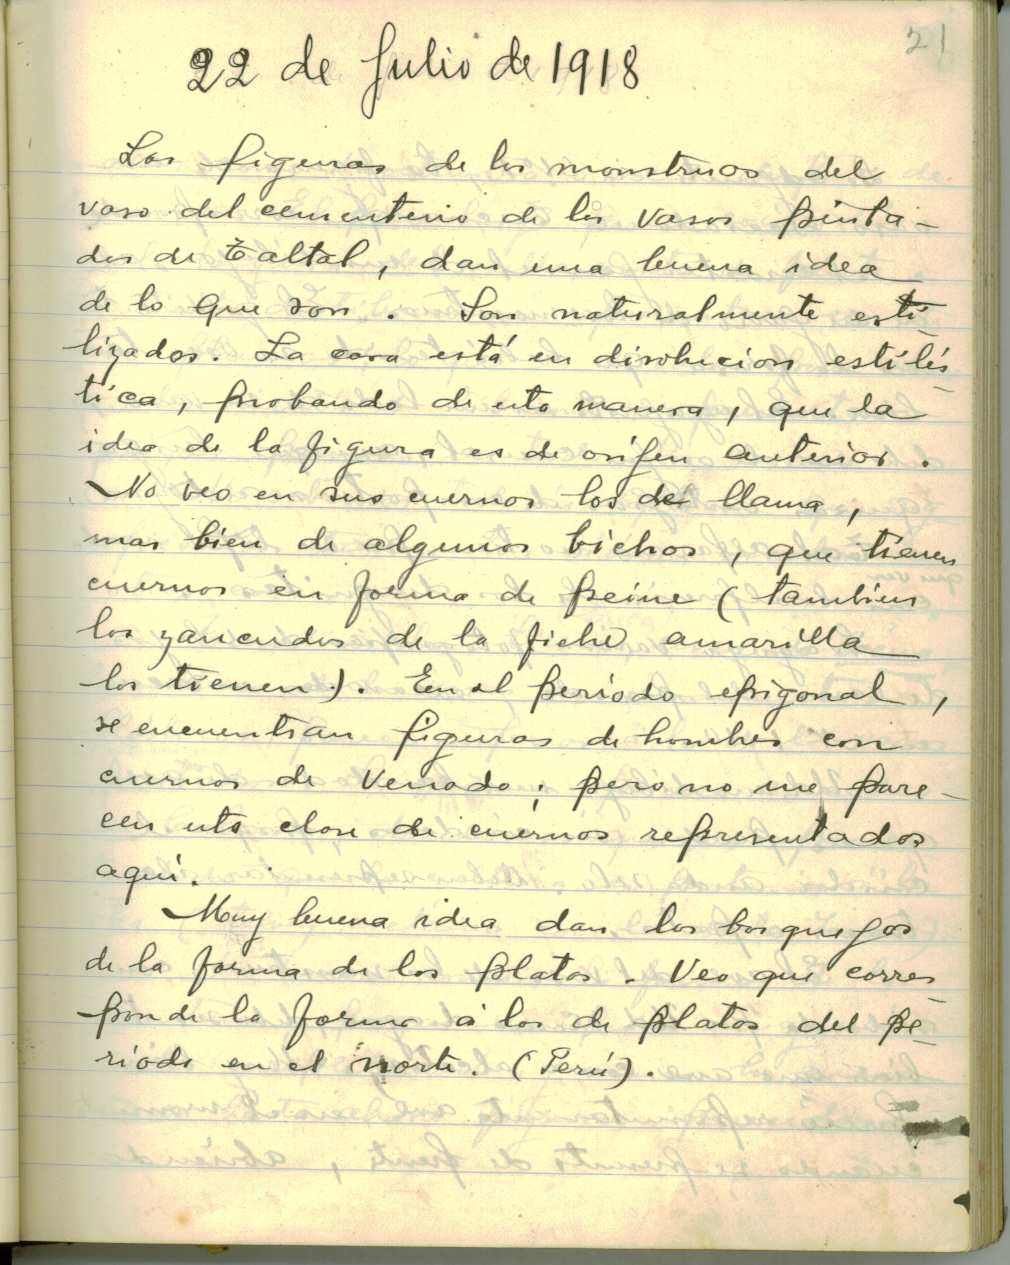 21
22 de Julio de 1918
Las figuras de los monstruos del
vaso del cementerio de los vasos pinta-
dos de Taltal, dan una buena idea
de lo que son. Son naturalmente esti-
lizados. La cara está en disolucion estilís-
tica, probando de esta manera, que la
idea de la figura es de oríjen anterior.
No veo en sus cuernos los de llama,
mas bien de algunos bichos, que tienen
cuernos en forma de peine (tambien
los zancudos de la fiebre amarilla
los tienen). En el periodo epigonal,
se encuentran figuras de hombres con
cuernos de venado; pero no me pare-
cen esta clase de cuernos representados
aquí.
Muy buena idea dan los bosquejos
de la forma de los platos. Veo que corres-
ponde la forma á los de platos del pe-
riodo en el norte. (Perú).